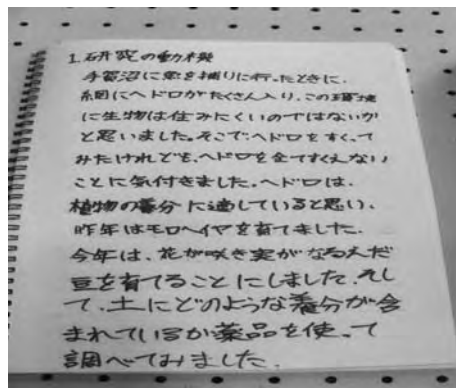 1.研究の動機
手賀沼に魚を捕りに行ったときに、
網にヘドロがたくさん入り、この環境
に生物は住みにくいのではないか
と思いました。そこで、ヘドロをすくって
みたけれども、ヘドロを全てすくえない
ことに気付きました。ヘドロは、
植物の養分に適していると思い、
昨年はモロヘイヤを育てました。
今年は、花が咲き実がなるえだ
豆を育てることにしました。そし
て、土にどのような養分が含
まれているか薬品を使って
調べてみました。